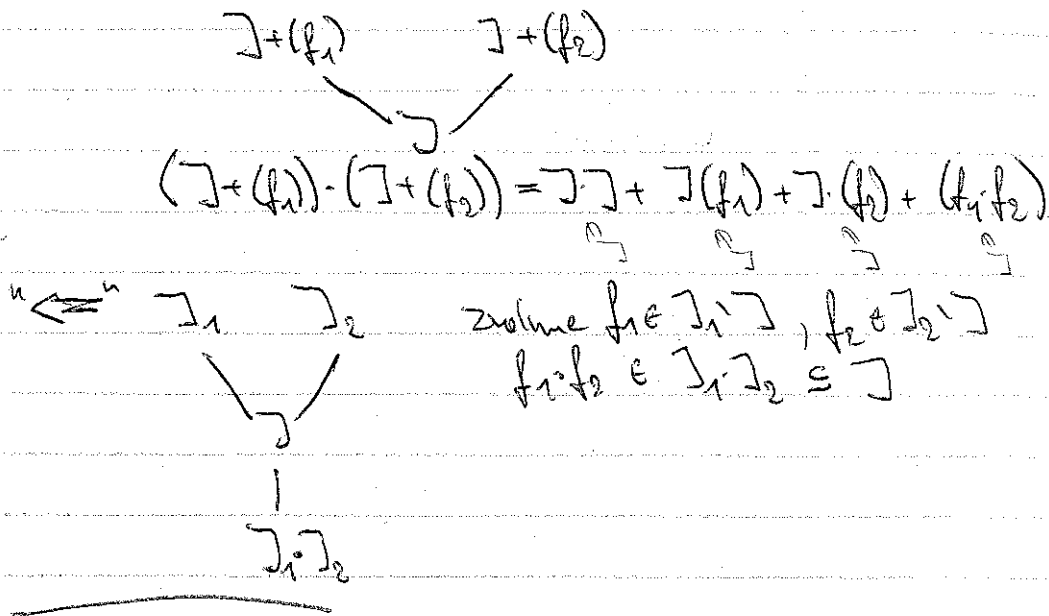 J+(f₁) J+(f₂)
J
(J+(f₁))·(J+(f₂)) = J·J + J(f₁) + J·(f₂) + (f₁·f₂)
∩J ∩J ∩J ∩J
"⇐" J₁ J₂ zvolme f₁ ∈ J₁∖J, f₂ ∈ J₂∖J
f₁·f₂ ∈ J₁·J₂ ⊆ J
J
J₁·J₂